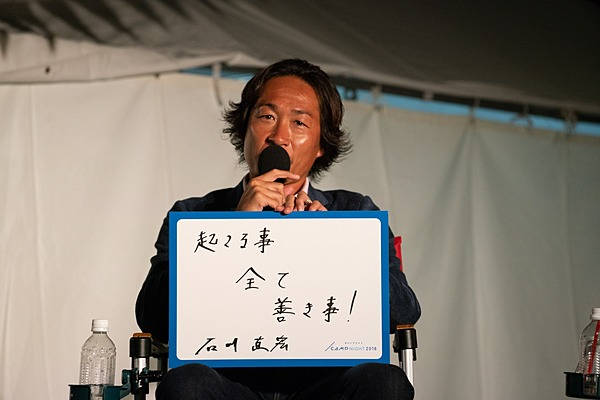 起こる事
全て
善き事！
石川 直宏
CAMP NIGHT 2018